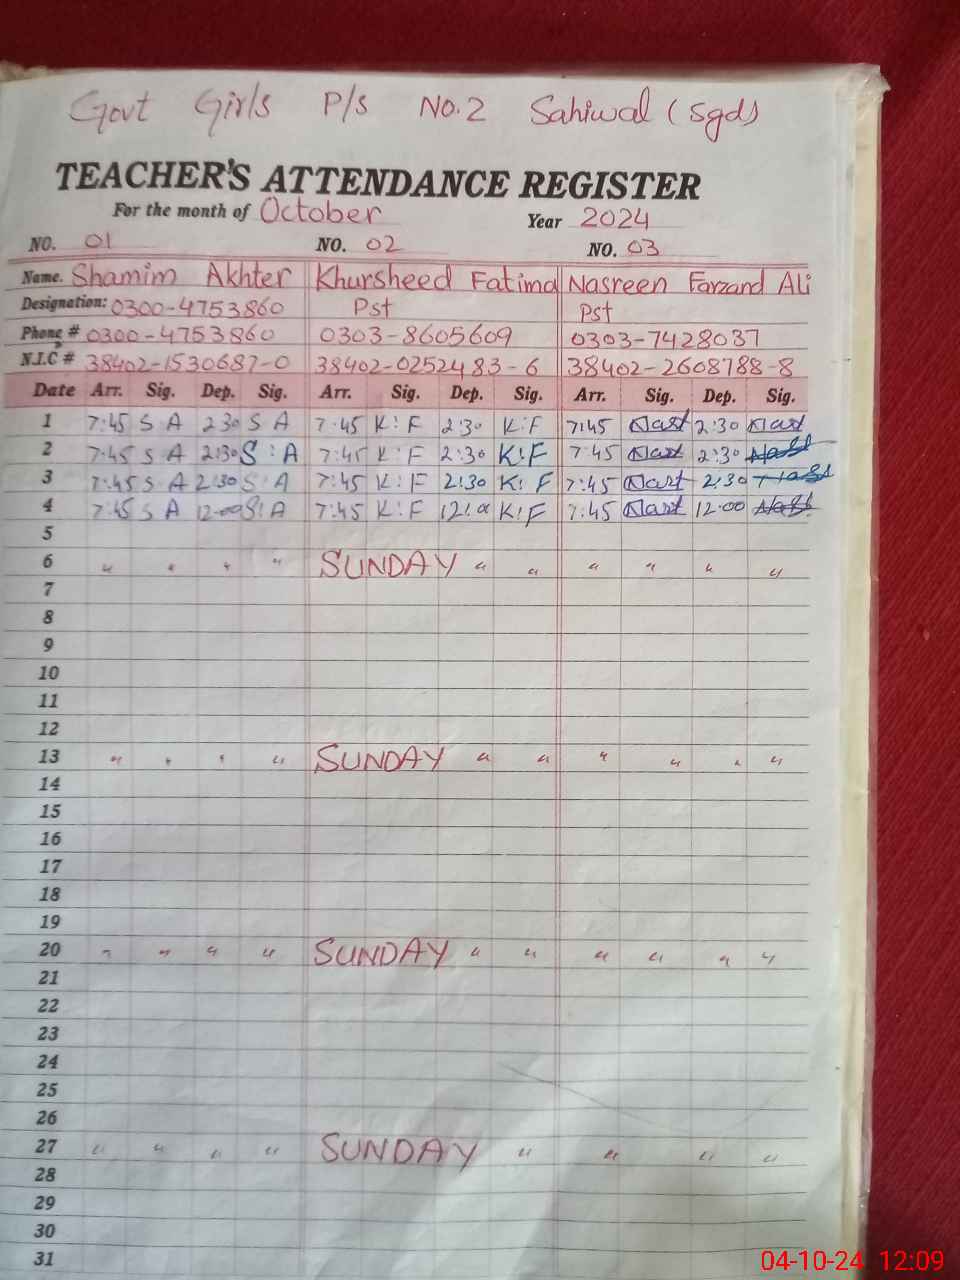 Govt Girls P/S NO.2 Sahiwal (Sgd)
TEACHER'S ATTENDANCE REGISTER
For the month of October Year 2024
NO. 01 NO. 02 NO. 03
Name. Shamim Akhter Khursheed Fatima Nasreen Farzand Ali
Designation: 0300-4753860 Pst Pst
Phone # 0300-4753860 0303-8605609 0303-7428037
N.I.C # 38402-1530687-0 38402-0252483-6 38402-2608788-8
Date Arr. Sig. Dep. Sig. Arr. Sig. Dep. Sig. Arr. Sig. Dep. Sig.
1 7:45 S A 2:30 S A 7:45 K:F 2:30 K:F 7:45 2:30
2 7:45 S A 2:30 S:A 7:45 K:F 2:30 K:F 7:45 2:30
3 7:45 S A 2:30 S:A 7:45 K:F 2:30 K:F 7:45 2:30
4 7:45 S A 12:00 S:A 7:45 K:F 12:00 K:F 7:45 12:00
5
6 " " " " SUNDAY " " " " " "
7
8
9
10
11
12
13 " " " " SUNDAY " " " " " "
14
15
16
17
18
19
20 " " " " SUNDAY " " " " " "
21
22
23
24
25
26
27 " " " " SUNDAY " " " "
28
29
30
31
04-10-24 12:09